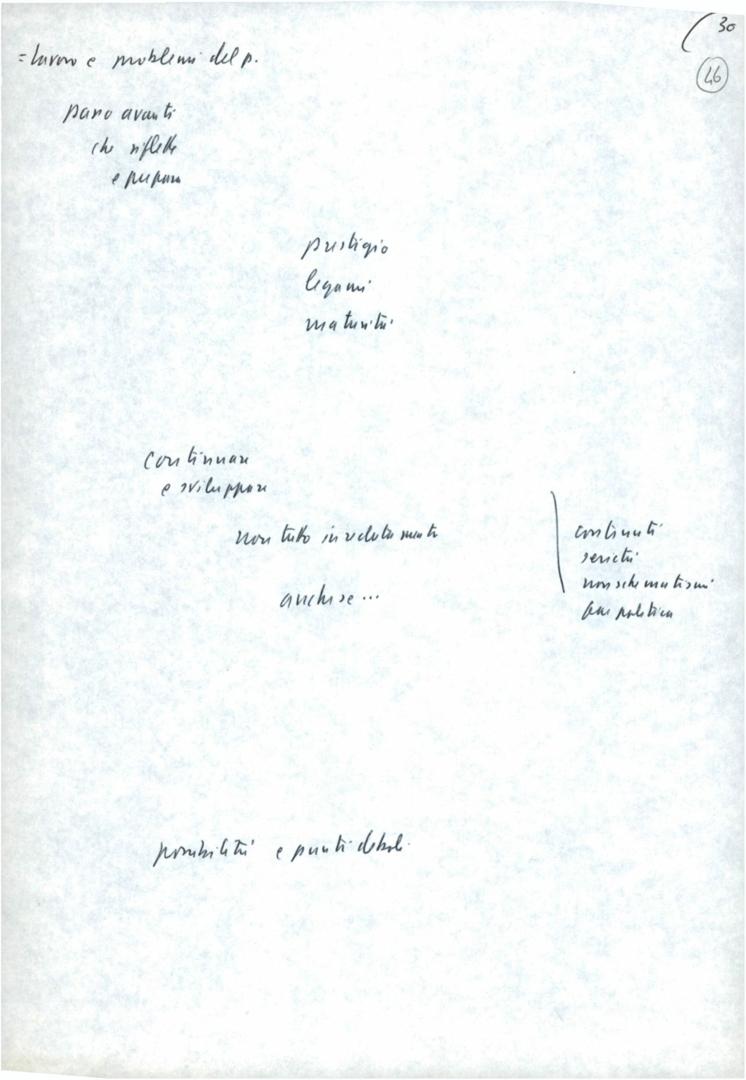 30
46
= lavoro e problemi del p.
passo avanti
che riflette
e prepara
prestigio
legami
maturità
continuare
e sviluppare
non tutto
anche se ...
continuità
serietà
non schematismi
politica
possibilità e punti deboli